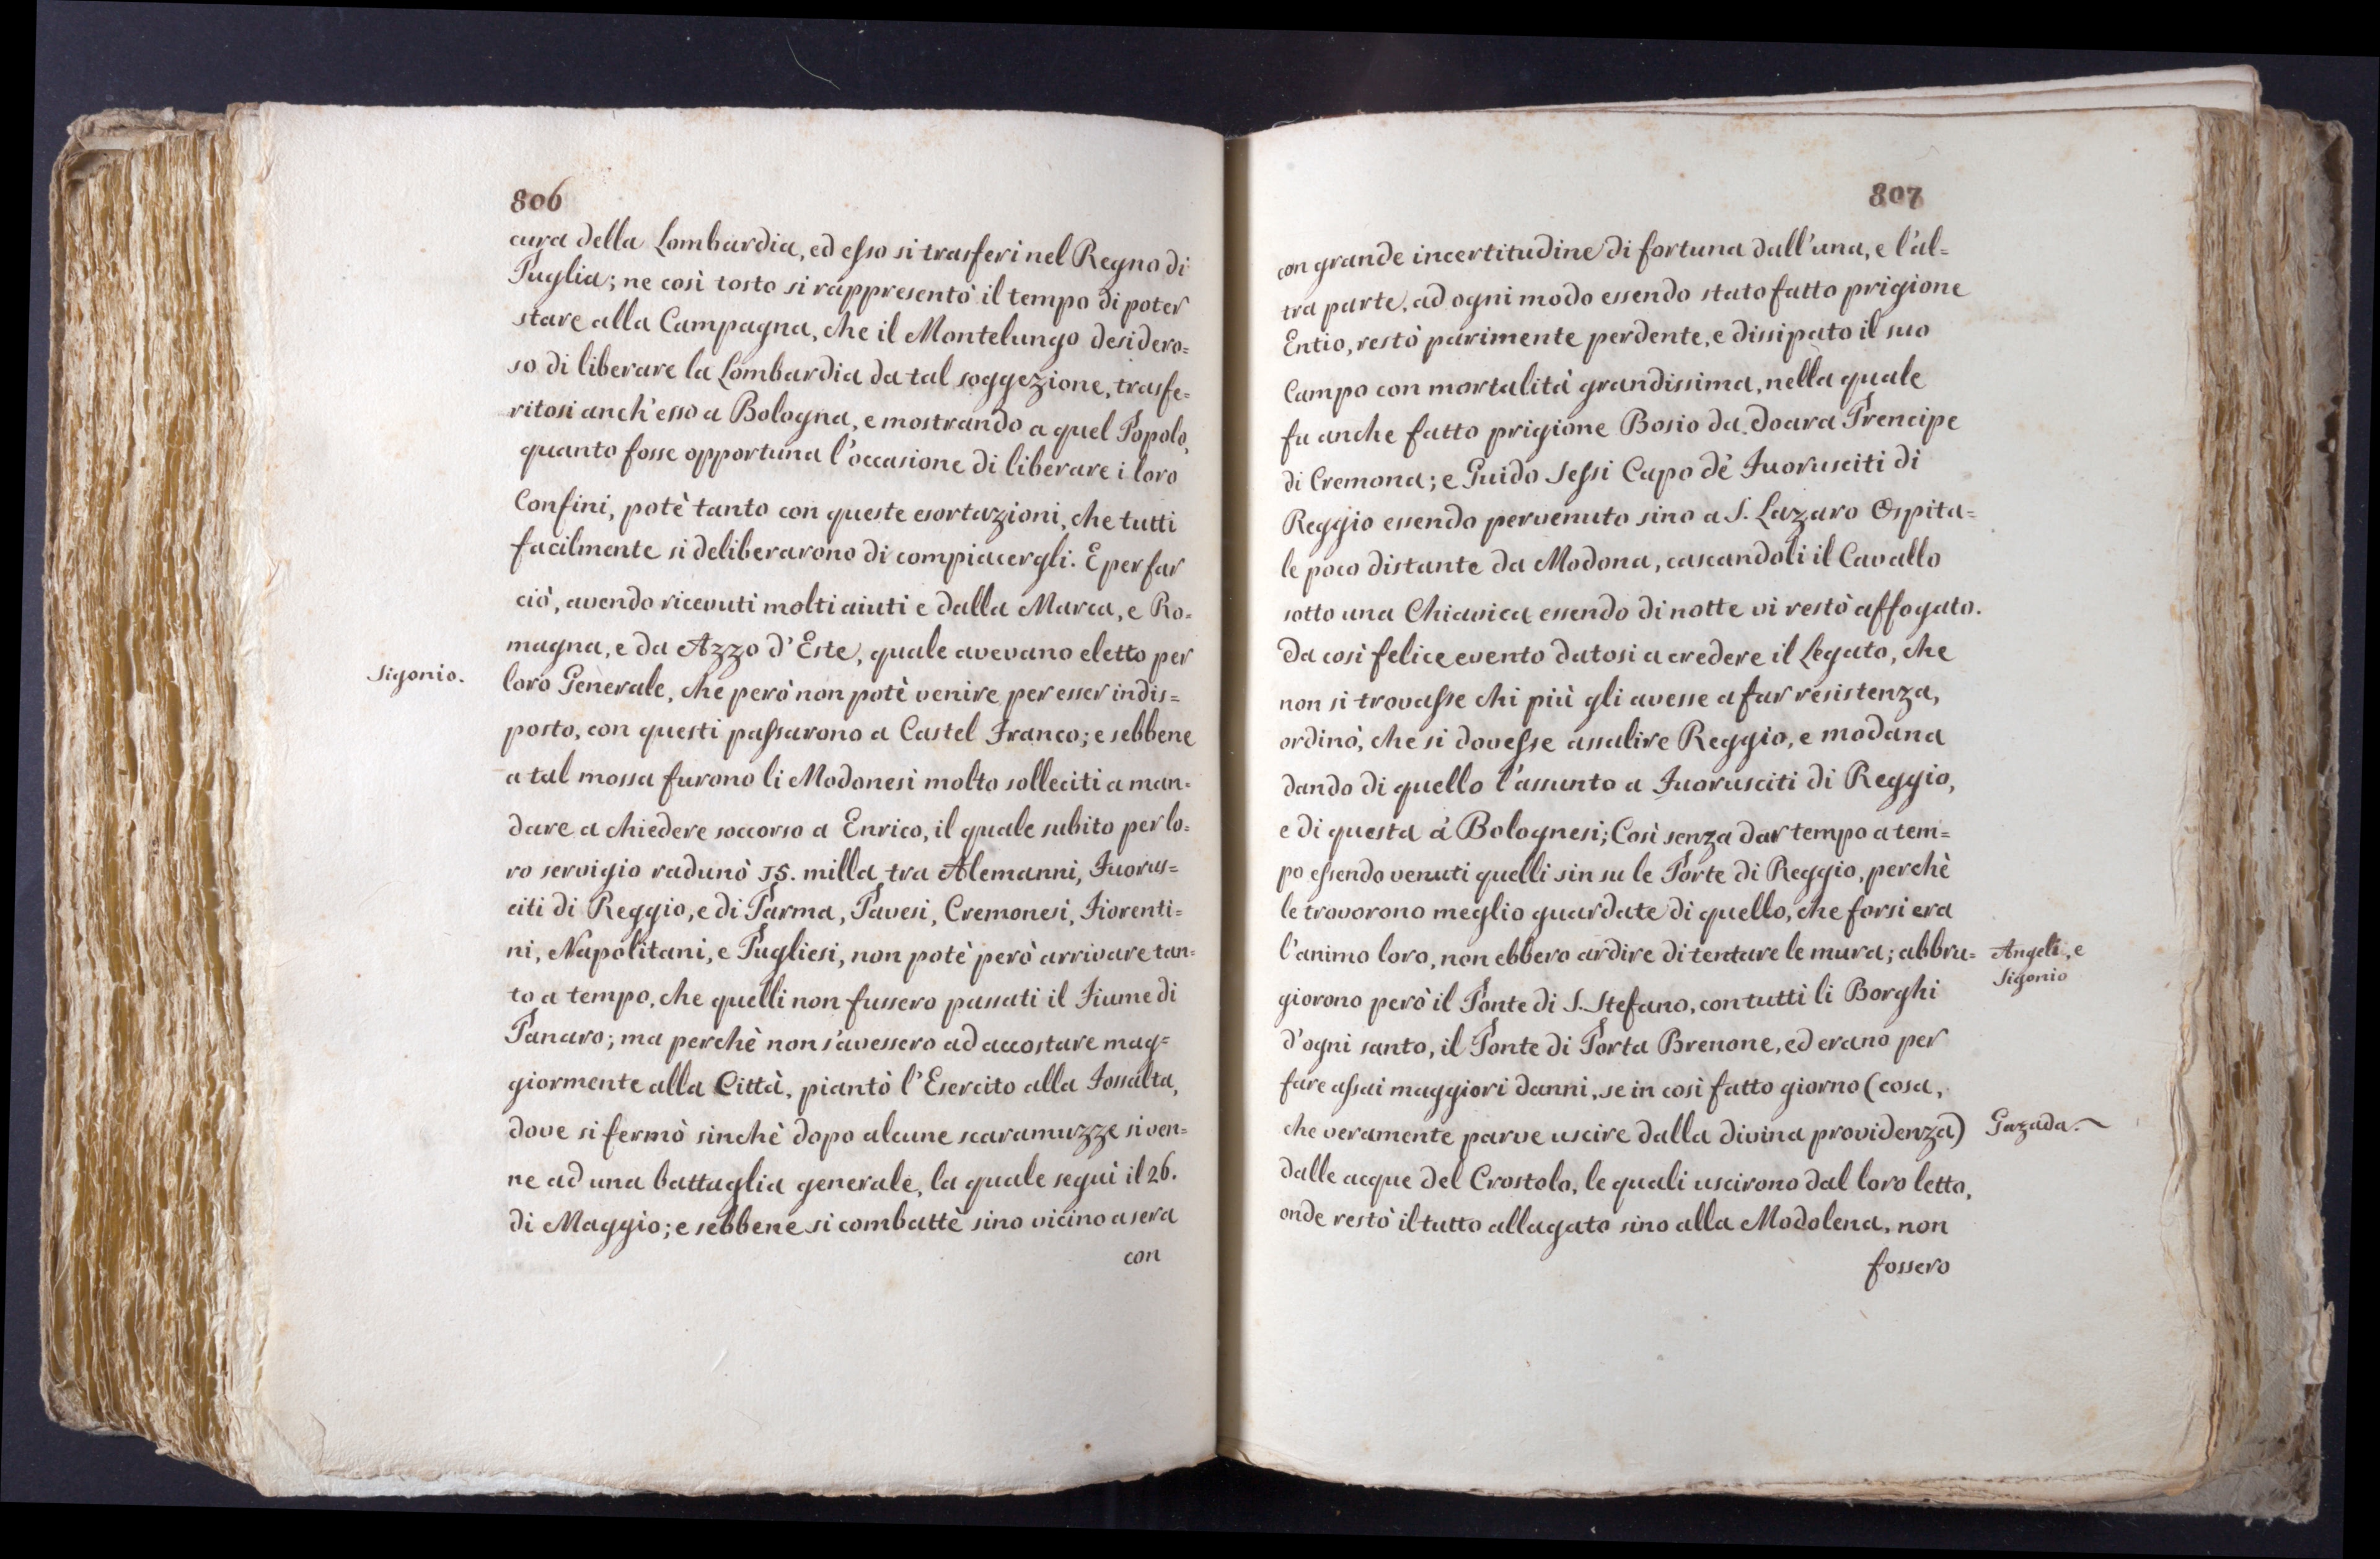 806
cura della Lombardia, ed esso si trasferì nel Regno di
Puglia; ne così tosto si rappresentò il tempo di poter
stare alla Campagna, che il Montelungo desidero=
so di liberare la Lombardia da tal soggezione, trasfe=
ritosi anch'esso a Bologna, e mostrando a quel Popolo,
quanto fosse opportuna l'occasione di liberare i loro
Confini, potè tanto con queste esortazioni, che tutti
facilmente si deliberarono di compiacergli. E per far
ciò, avendo ricevuti molti aiuti e dalla Marca, e Ro=
magna, e da Azzo d'Este, quale avevano eletto per
Sigonio.
loro Generale, che però non potè venire per esser indis=
posto, con questi passarono a Castel Franco; e sebbene
a tal mossa furono li Modonesi molto solleciti a man=
dare a chiedere soccorso a Enrico, il quale subito per lo=
ro servigio radunò 15. milla tra Alemanni, Fuorus=
citi di Reggio, e di Parma, Pavesi, Cremonesi, Fiorenti=
ni, Napolitani, e Pugliesi, non potè però arrivare tan=
to a tempo, che quelli non fussero passati il Fiume di
Panaro; ma perchè non s'avessero ad accostare mag=
giormente alla Città, piantò l'Esercito alla Fossalta,
dove si fermò sinchè dopo alcune scaramuzze si ven=
ne ad una battaglia generale, la quale seguì il 26.
di Maggio; e sebbene si combattè sino vicino a sera
con
807
con grande incertitudine di fortuna dall'una, e l'al=
tra parte, ad ogni modo essendo stato fatto prigione
Entio, restò parimente perdente, e dissipato il suo
Campo con mortalità grandissima, nella quale
fu anche fatto prigione Bosio da Doara Prencipe
di Cremona; e Guido Sessi Capo dè Fuorusciti di
Reggio essendo pervenuto sino a S. Lazaro Ospita=
le poco distante da Modona, cascandoli il Cavallo
sotto una Chiavica essendo di notte vi restò affogato.
Da così felice evento datosi a credere il Legato, che
non si trovasse chi più gli avesse a far resistenza,
ordinò, che si dovesse assalire Reggio, e modana
dando di quello l'assunto a Fuorusciti di Reggio,
e di questa à Bolognesi; Così senza dar tempo a tem=
po essendo venuti quelli sin su le Porte di Reggio, perchè
le trovorono meglio guardate di quello, che forsi era
l'animo loro, non ebbero ardire di tentare le mura; abbru=
Angeli, e
Sigonio
giorono però il Ponte di S. Stefano, con tutti li Borghi
d'ogni santo, il Ponte di Porta Brenone, ed erano per
fare assai maggiori danni, se in così fatto giorno (cosa,
che veramente parve uscire dalla divina providenza)
Gazada.
dalle acque del Crostolo, le quali uscirono dal loro letto,
onde restò il tutto allagato sino alla Modolena, non
fossero